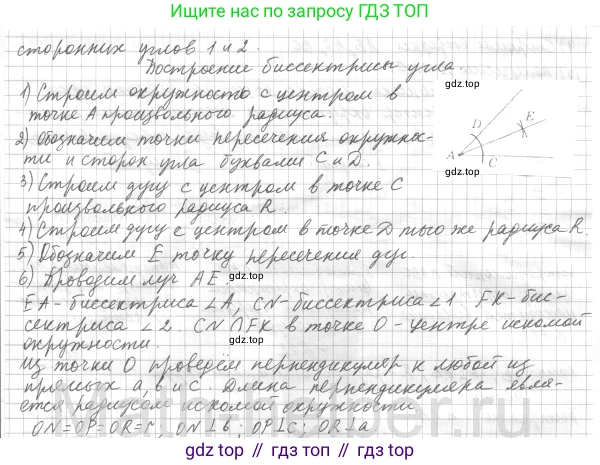 Ищите нас по запросу ГДЗ ТОП
сторонних углов 1 и 2.
Построение биссектрисы угла.
1) Строим окружность с центром в
точке A произвольного радиуса.
2) Обозначим точки пересечения окружнос-
ти и сторон угла буквами C и D.
3) Строим дугу с центром в точке C
произвольного радиуса R.
4) Строим дугу с центром в точке D того же радиуса R.
5) Обозначим E точку пересечения дуг.
6) Проводим луч AE.
EA - биссектриса ∠A, CN - биссектриса ∠1. FK - бис-
сектриса ∠2. CN ∩ FK в точке O - центре искомой
окружности.
Из точки O проведём перпендикуляр к любой из
прямых a, b и c. Длина перпендикуляра явля-
ется радиусом искомой окружности.
ON = OP = OR = r, ON ⊥ b; OP ⊥ c; OR ⊥ a.
A
D
E
C
gdz.top
gdz.top
gdz.top
gdz.top
gdz.top
gdz.top
gdz.top // gdz.top // gdz.top